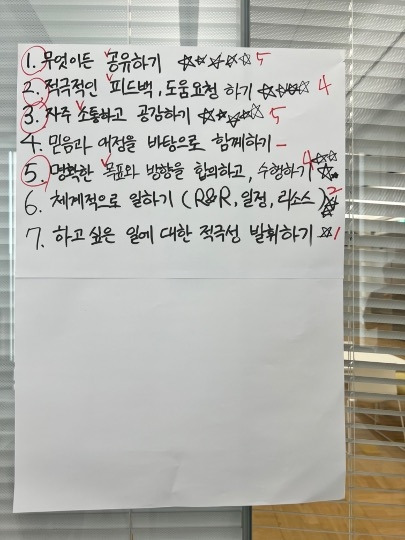 1. 무엇이든 공유하기 ☆☆☆☆☆ 5
2. 적극적인 피드백, 도움요청 하기 ☆☆☆☆ 4
3. 자주 소통하고 공감하기 ☆☆☆☆☆ 5
4. 믿음과 애정을 바탕으로 함께하기 -
5. 명확한 목표와 방향을 합의하고, 수행하기 ☆☆☆☆ 4
6. 체계적으로 일하기 (R&R, 일정, 리소스) ☆☆ 2
7. 하고 싶은 일에 대한 적극성 발휘하기 ☆ 1